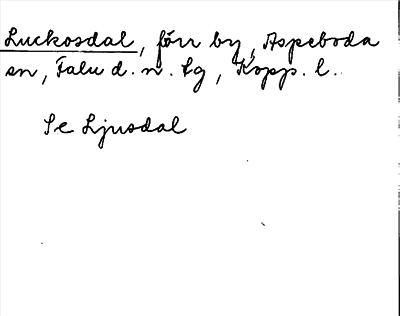 Luckosdal, förr by, Aspeboda
sn, Falu d. n. tg, Kopp. l.
Se Ljusdal